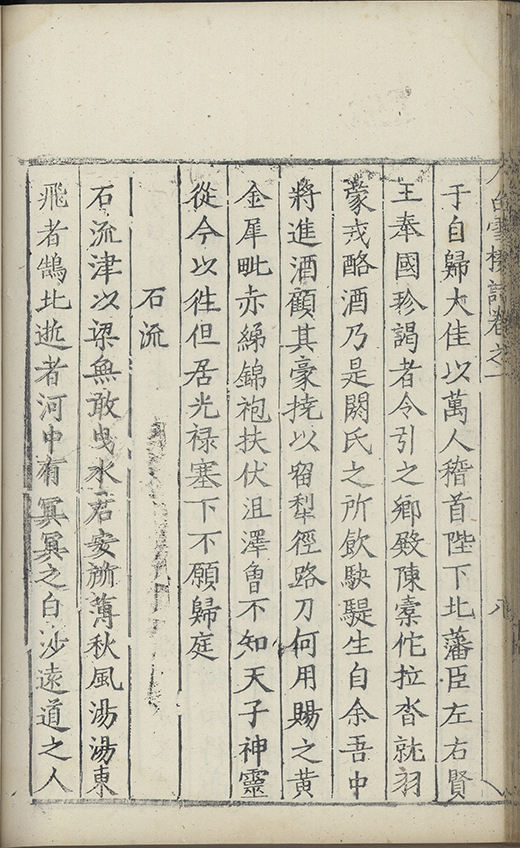 白雪樓詩卷之一
八
于自歸大佳以萬人稽首陛下北藩臣左右賢
王奉國珍謁者令引之鄉殿陳橐佗拉沓就羽
蒙戎酪酒乃是閼氏之所飲駃騠生自余吾中
將進酒顧其豪撓以留犁徑路刀何用賜之黃
金犀毗赤綈錦袍扶伏沮澤會不知天子神靈
從今以徃但居光祿塞下不願歸庭
石流
石流津以梁無敢曳水君安所薄秋風湯湯東
飛者鵠北逝者河中有冥冥之白沙遠道之人